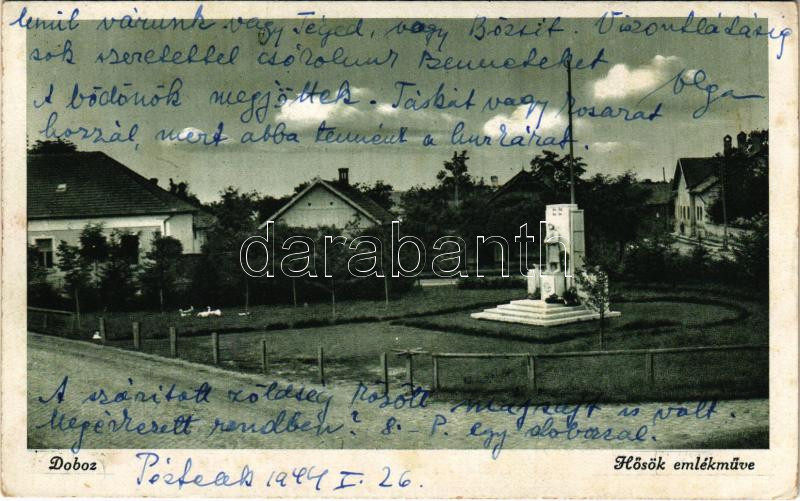 lenül várunk vagy Téged, vagy Bözsit. Viszontlátásig
sok szeretettel csókolunk Benneteket
Olga
A bödönök megjöttek. Táskát vagy kosarat
hozzál, mert abba tennént a hurkárat.
darabanth
A szárított zöldség között májsajt is volt.
Megérkezett rendben? S. P. egy dobozzal.
Doboz
Péntek 1944 I. 26.
Hősök emlékműve